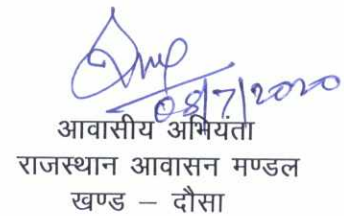 08/7/2020
आवासीय अभियंता
राजस्थान आवासन मण्डल
खण्ड – दौसा